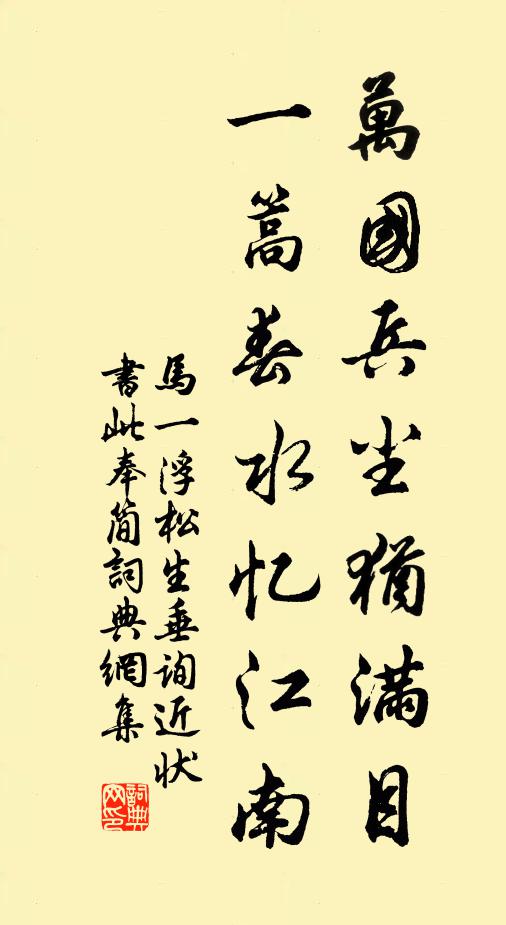 萬國兵尘猶满目
一篙春水忆江南
馬一浮松生垂询近状
書此奉简詞典網集
詞典网印